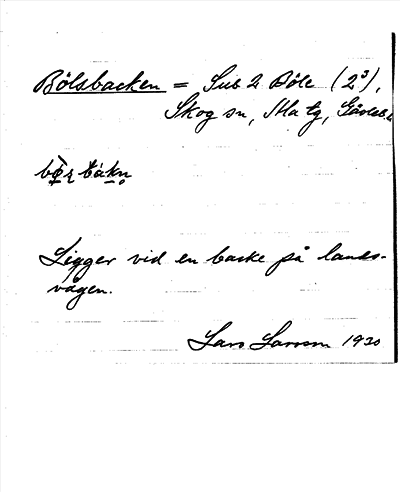 Bölsbacken = Sub 2 Böle (2³),
Skog sn, Ma tg, Gävleb.
Ligger vid en backe på lands-
vägen.
Lars Larsson 1920